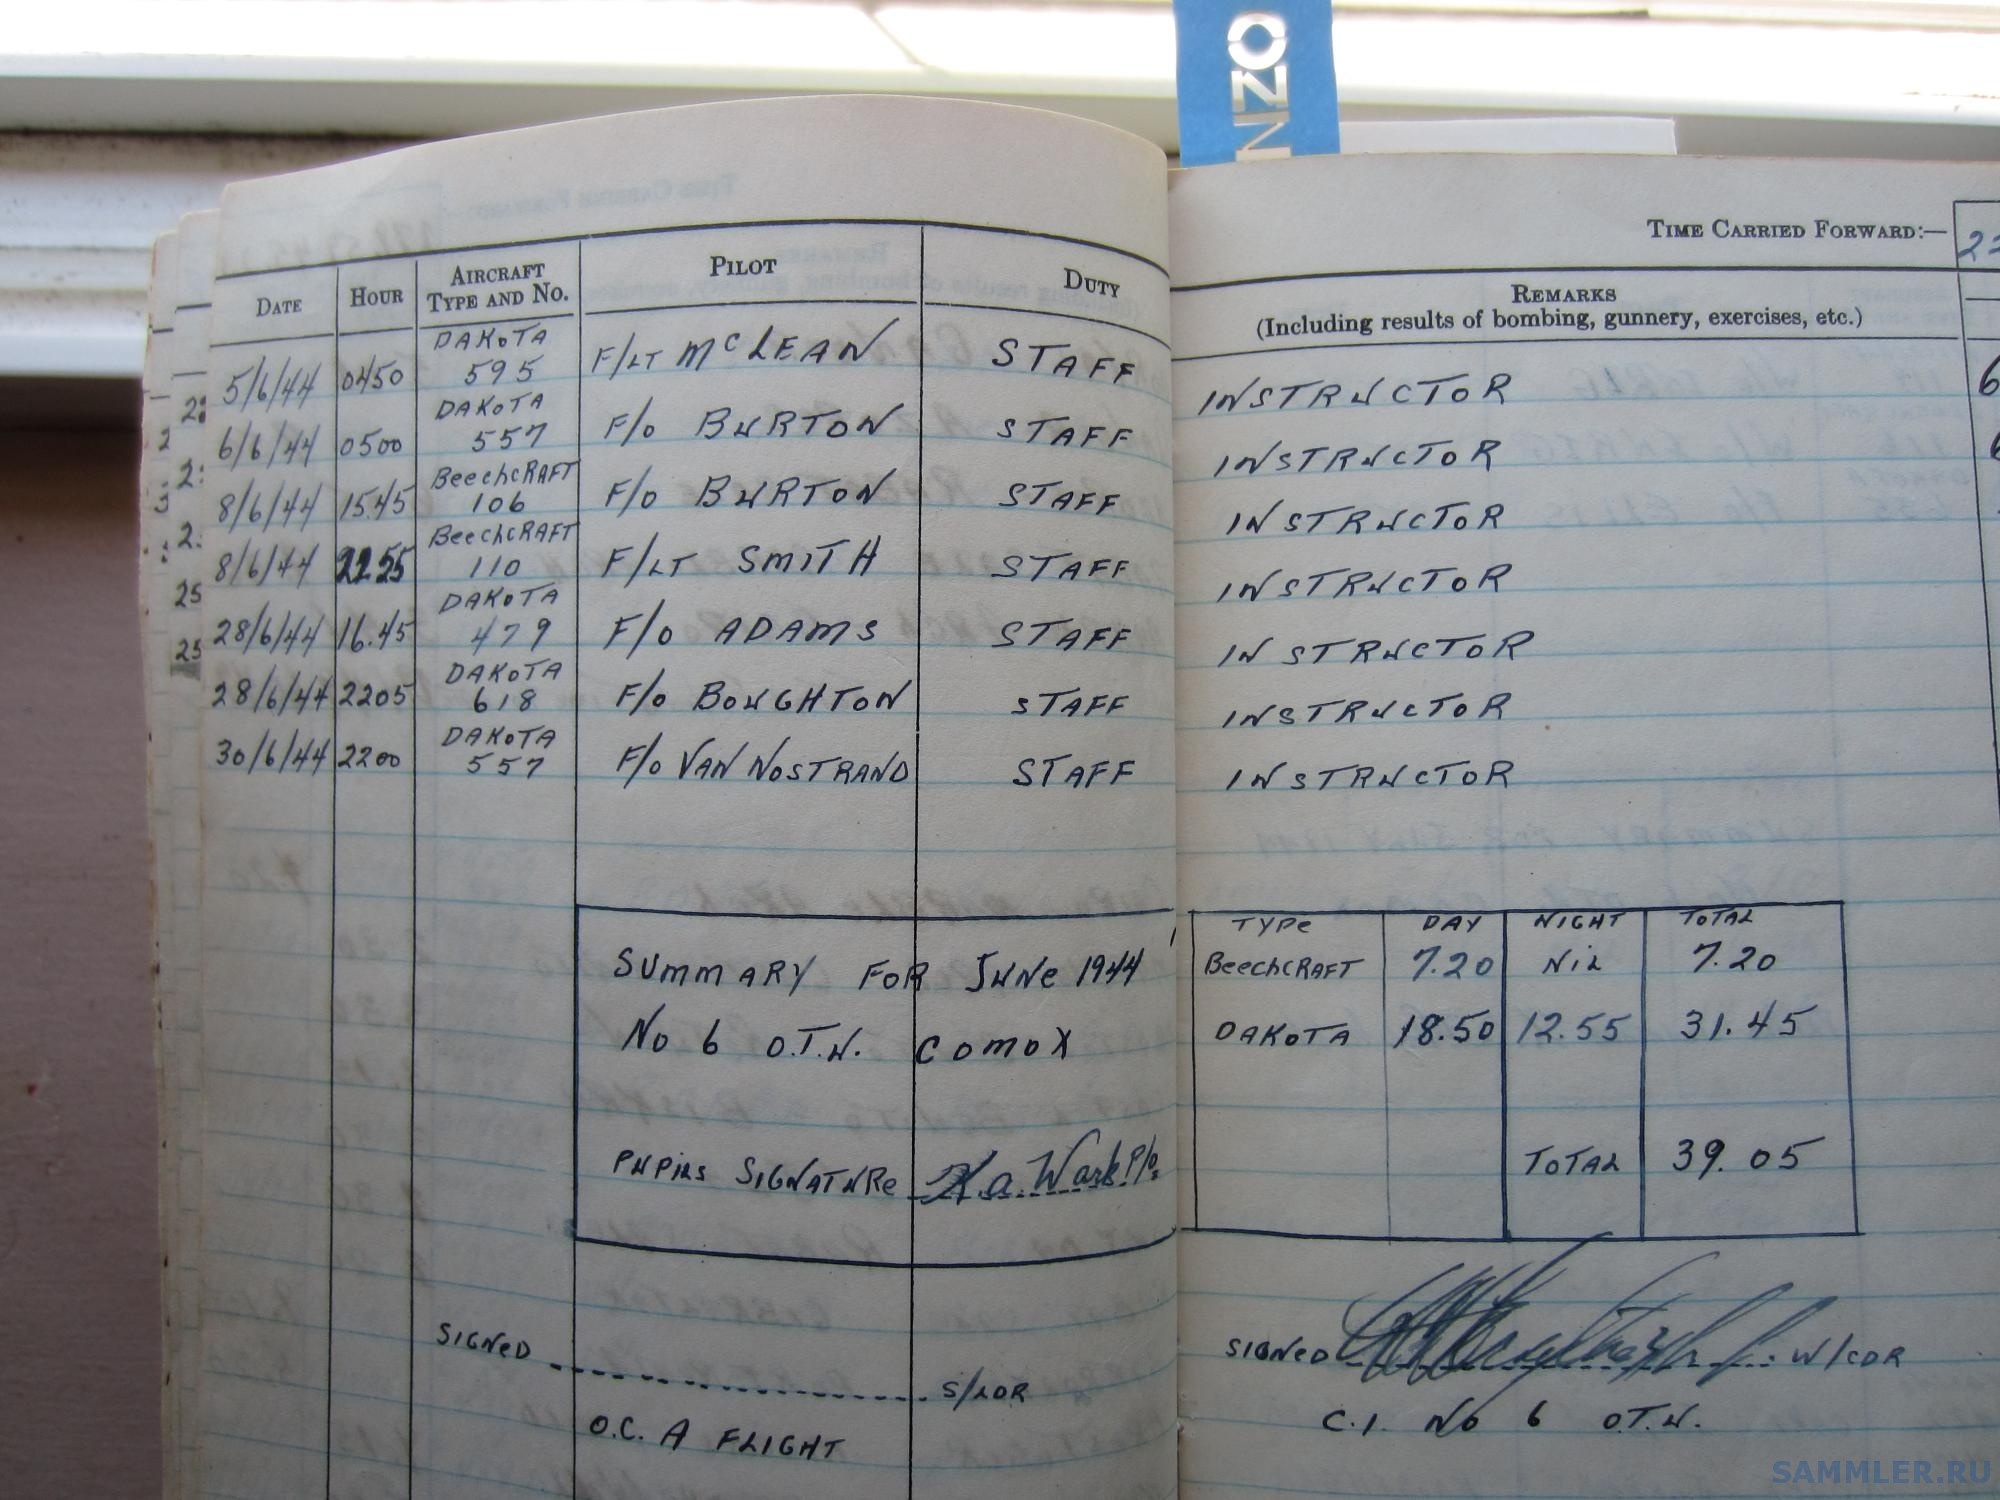 NZO
TIME CARRIED FORWARD:—
DATE HOUR AIRCRAFT TYPE AND No. PILOT DUTY
REMARKS
(Including results of bombing, gunnery, exercises, etc.)
5/6/44 0450 DAKOTA 595 F/LT McLEAN STAFF INSTRUCTOR
6/6/44 0500 DAKOTA 557 F/O BURTON STAFF INSTRUCTOR
8/6/44 15.45 BeechCRAFT 106 F/O BURTON STAFF INSTRUCTOR
8/6/44 22.55 BeechCRAFT 110 F/LT SMITH STAFF INSTRUCTOR
28/6/44 16.45 DAKOTA 479 F/O ADAMS STAFF INSTRUCTOR
28/6/44 2205 DAKOTA 618 F/O BOUGHTON STAFF INSTRUCTOR
30/6/44 2200 DAKOTA 557 F/O VAN NOSTRAND STAFF INSTRUCTOR
SUMMARY FOR JUNe 1944
No 6 O.T.U. COMOX
PUPILS SIGNATURe Wark P/O
TYPe DAY NIGHT TOTAL
BeechCRAFT 7.20 NiL 7.20
DAKOTA 18.50 12.55 31.45
TOTAL 39.05
SIGNeD S/LDR
O.C. A FLIGHT
SIGNeD W/CDR
C.I. No 6 O.T.U.
SAMMLER.RU